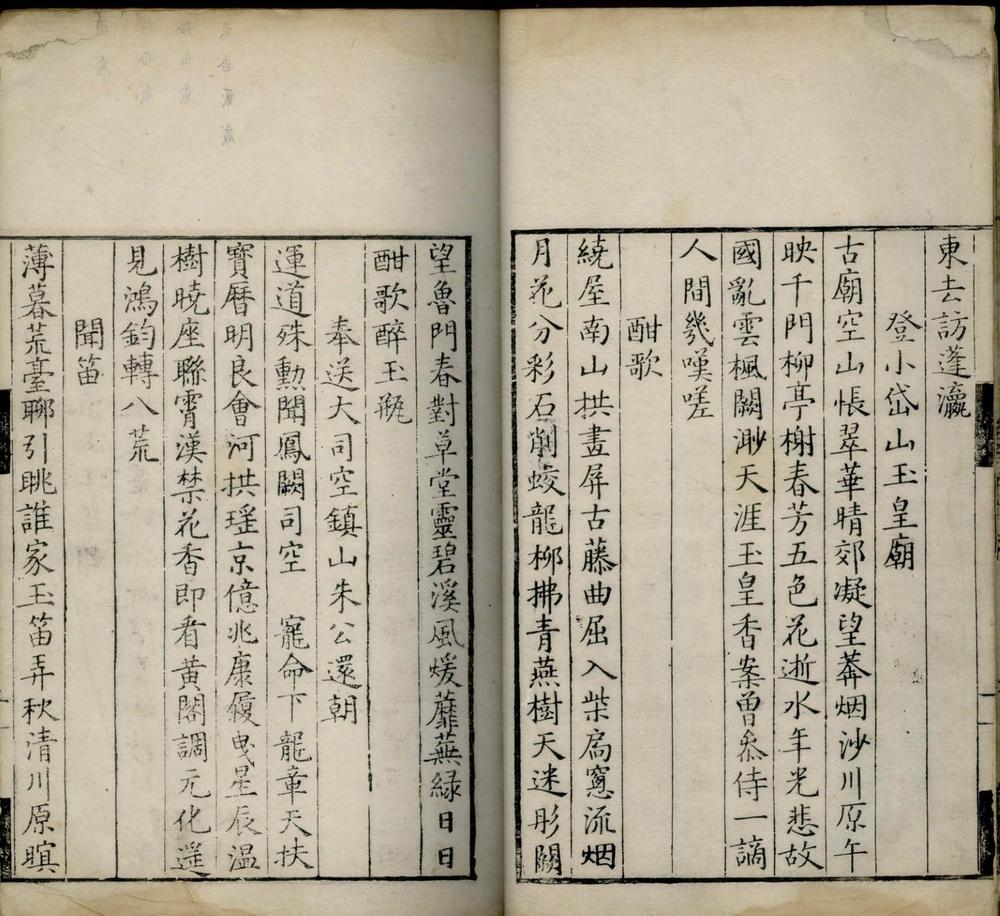 東去訪蓬瀛
登小岱山玉皇廟
古廟空山悵翠華晴郊凝望莽烟沙川原午
映千門柳亭榭春芳五色花逝水年光悲故
國亂雲楓闕渺天涯玉皇香案曽叅侍一謫
人間幾嘆嗟
酣歌
繞屋南山拱畫屏古藤曲屈入柴扃窻流烟
月花分彩石削蛟龍柳拂青燕樹天迷彤闕
望魯門春對草堂靈碧溪風煖蘼蕪緑日日
酣歌醉玉瓶
奉送大司空鎮山朱公還朝
運道殊勲聞鳳闕司空 寵命下龍章天扶
寶曆明良會河拱瑶京億兆康履曳星辰温
樹曉座聯霄漢禁花香即看黄閣調元化遥
見鴻鈞轉八荒
聞笛
薄暮荒臺聊引眺誰家玉笛弄秋清川原暝